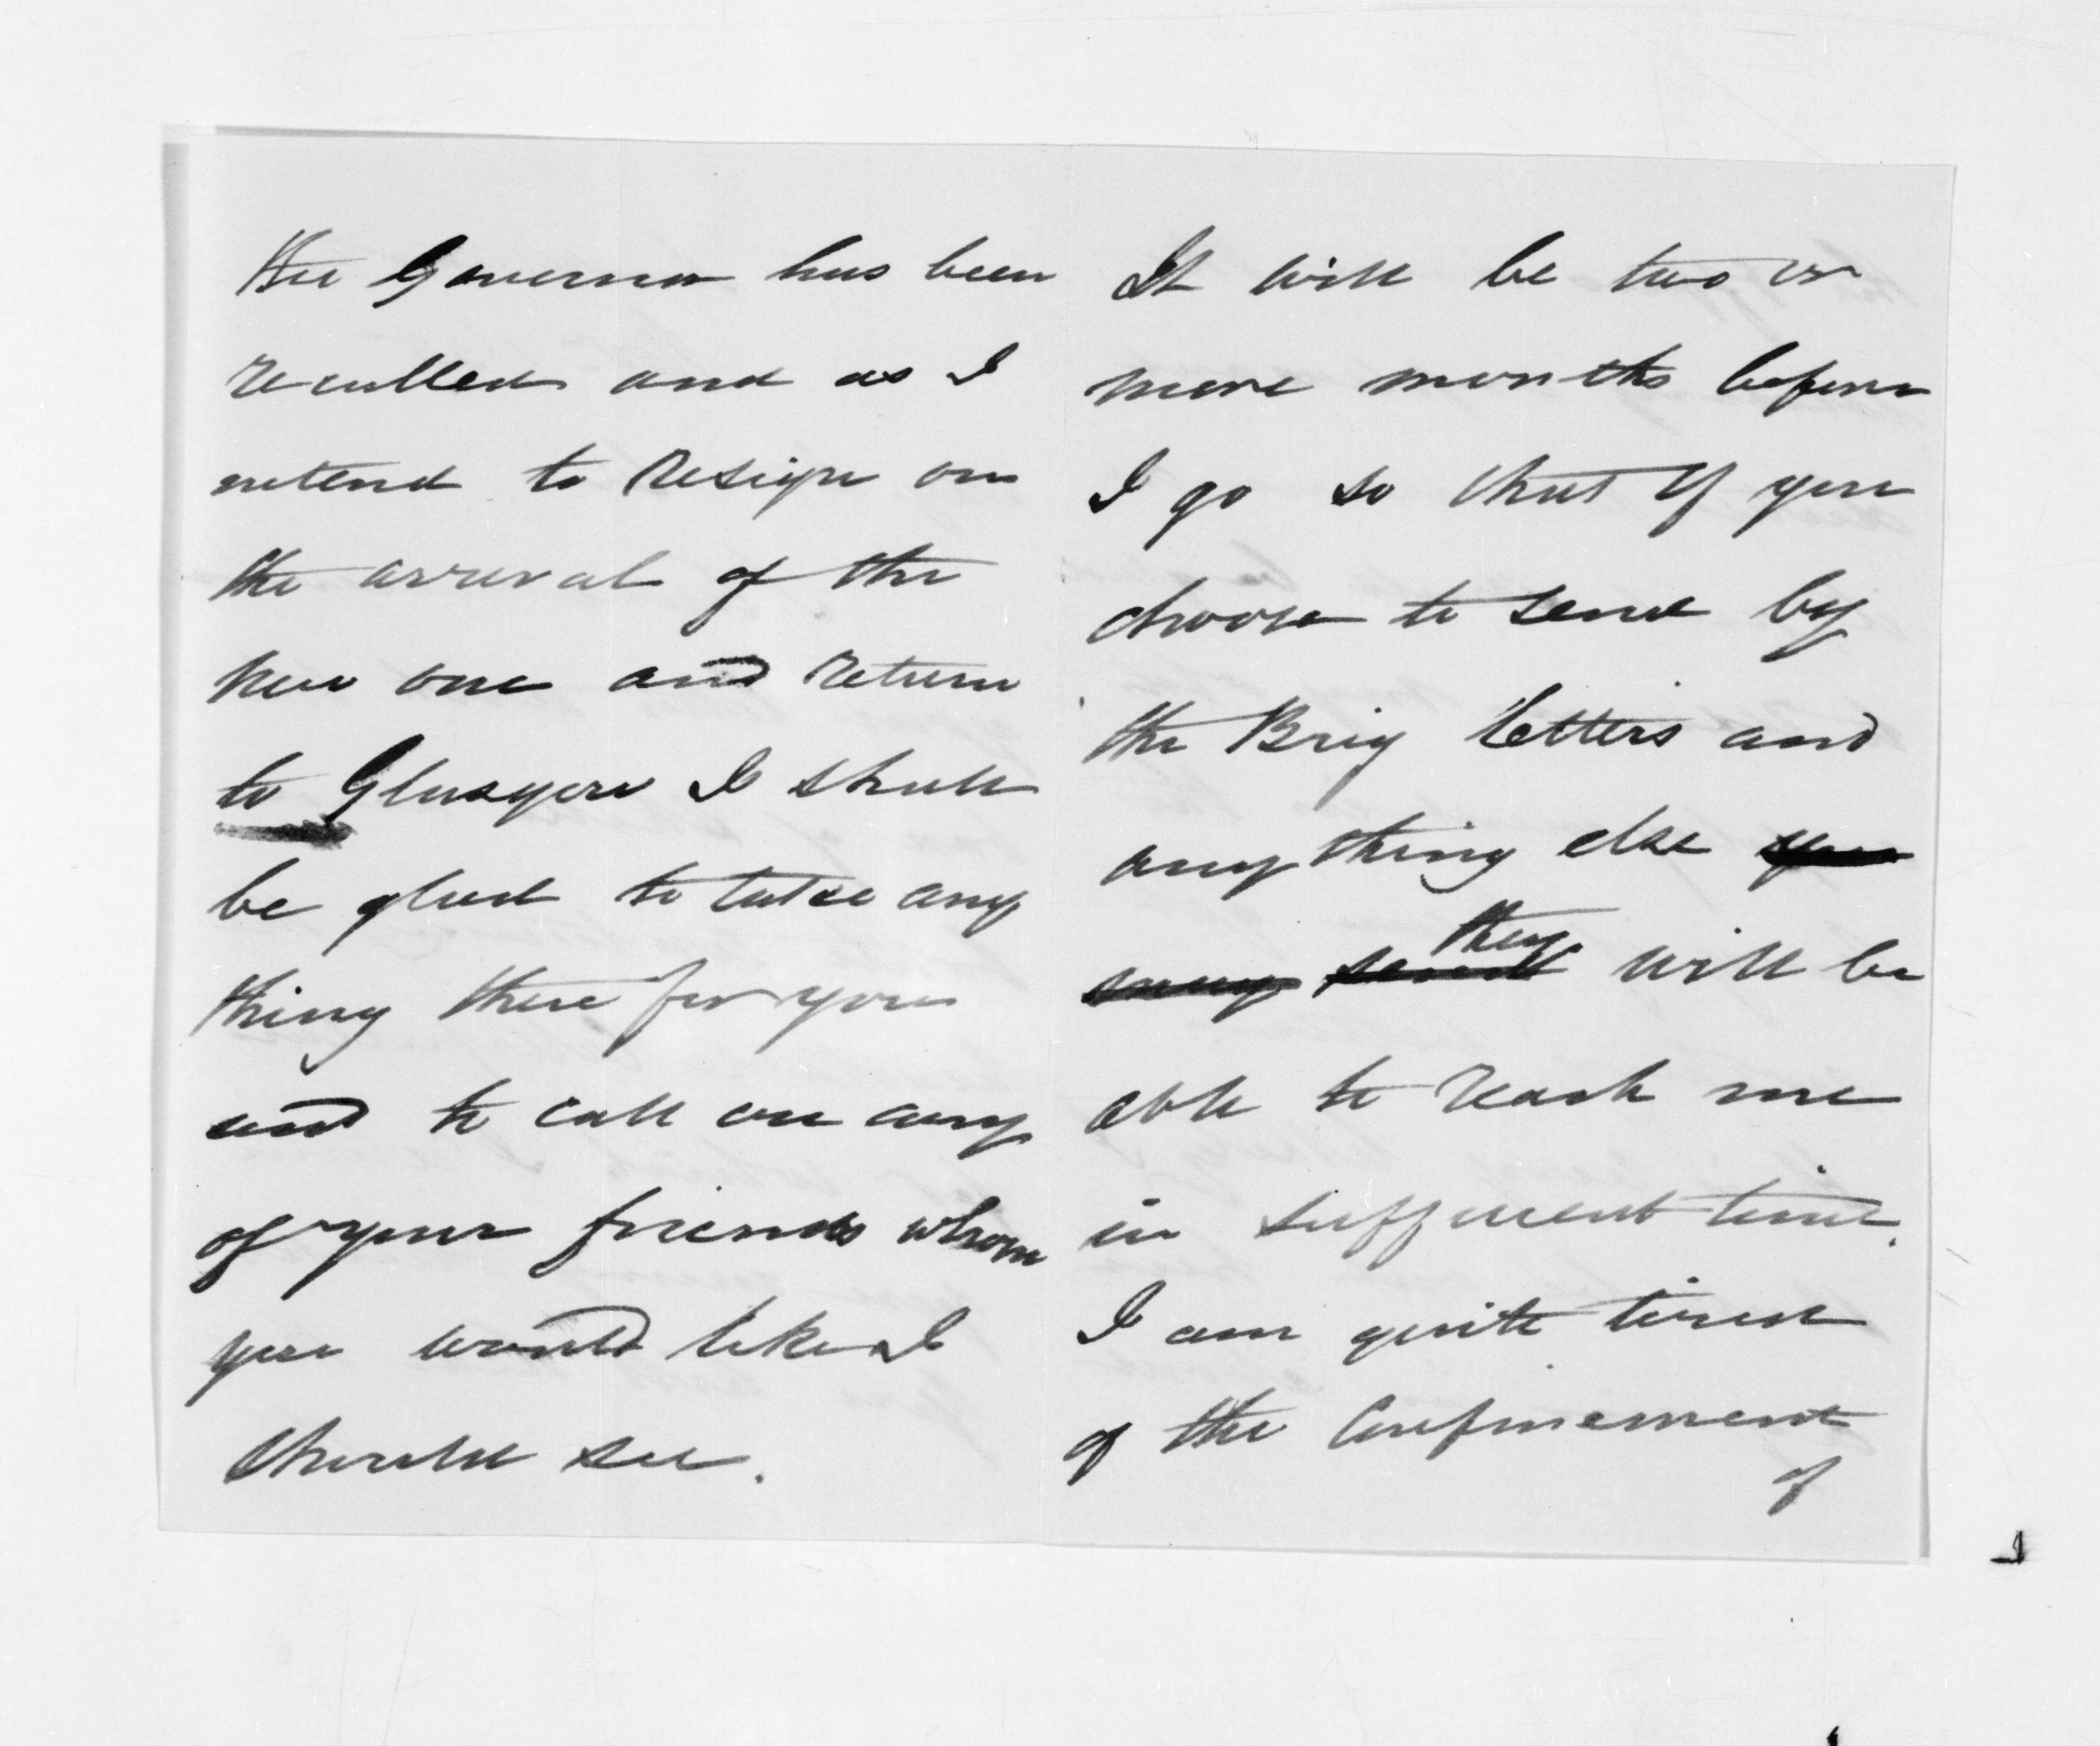 the Governor has been
recalled and as I
intend to resign on
the arrival of the
new one and return
to Glasgow I shall
be glad to take any
thing there for you
and to call on any
of your friends whom
you would like I
should see.
It will be two or
more months before
I go so that if you
choose to send by
the Brig letters and
any thing else you
may send they will be
able to reach me
in sufficient time.
I am quite tired
of the Confinement
of